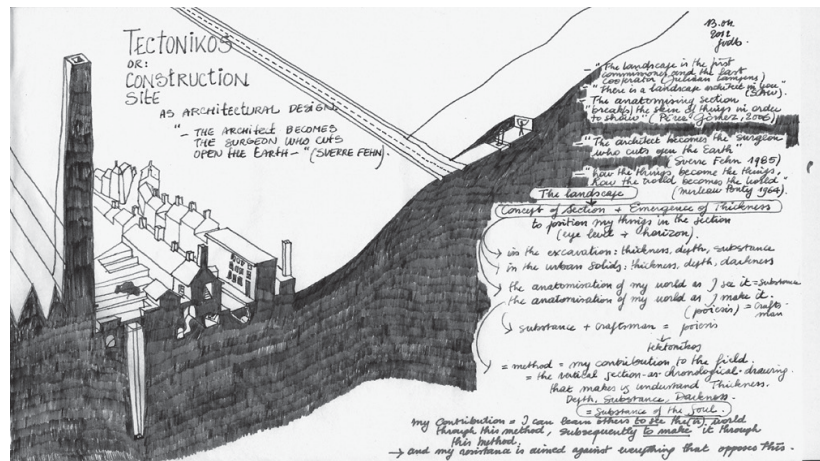 TECTONIKOS
OR:
CONSTRUCTION
SITE
AS ARCHITECTURAL DESIGN.
"– THE ARCHITECT BECOMES
THE SURGEON WHO CUTS
OPEN THE EARTH –" (SVERRE FEHN).
13.04.
2012
– "The landscape is the first
commissioner and the last
cooperator" (Juliaan Lampens)
– "There is a landscape architect in you"
– The anatomising section
"breaks the skin of things in order
to show" (Pérez-Gómez, 2006)
– "The architect becomes the surgeon
who cuts open the Earth"
Sverre Fehn 1985)
– "how the things become the things,
how the world becomes the world"
(Merleau Ponty 1964).
The landscape
Concept of Section + Emergence of Thickness
to position my things in the section
(eye level + horizon).
in the excavation: thickness, depth, substance
in the urban solids: thickness, depth, darkness
the anatomisation of my world as I see it = substance
the anatomisation of my world as I make it.
(poiesis) = crafts-
man
substance + craftsman = poiesis
tektonikos
= method = my contribution to the field.
= the vertical section-as-chronological-drawing.
that makes us understand Thickness.
Depth, Substance, Darkness.
= Substance of the Soul.
my contribution = I can learn others to see the(a) world
through this method, subsequently to make it through
this method.
→ and my resistance is aimed against everything that opposes this.